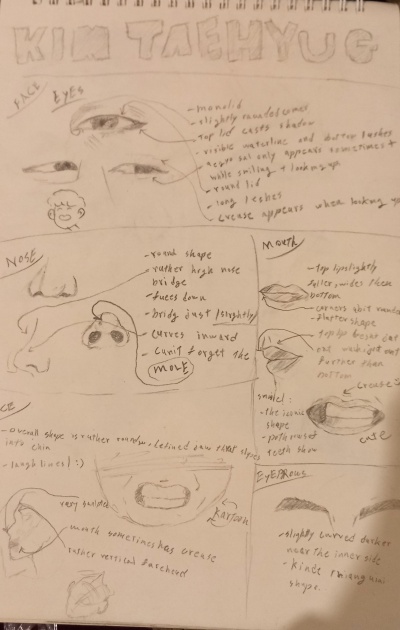 KIM TAEHYUG
FACE
EYES
- monolid
- slightly rounded corner
- top lid casts shadow
- visible waterline and bottom lashes
- aegyo sal only appears sometimes +
while smiling + looking up
- round lid
- long lashes
- crease appears when looking up
NOSE
- round shape
- rather high nose
bridge
- faces down
- bridg just (slightly)
curves inward
- can't forget the
MOLE
MOUTH
- top lip slightly
fuller, wider than
bottom
- corners a bit round
- flatter shape
- top lip
out
further than
bottom
smile:
- the iconic
shape
- both rows of
teeth show
crease
cute
- overall shape is rather round, defined jaw that slopes
into chin
- laugh lines! :)
very sculpted
mouth sometimes has crease
rather vertical forehead
KARTOON
EYEBROWS
- slightly curved darker
near the inner side
- kinda triangular
shape.